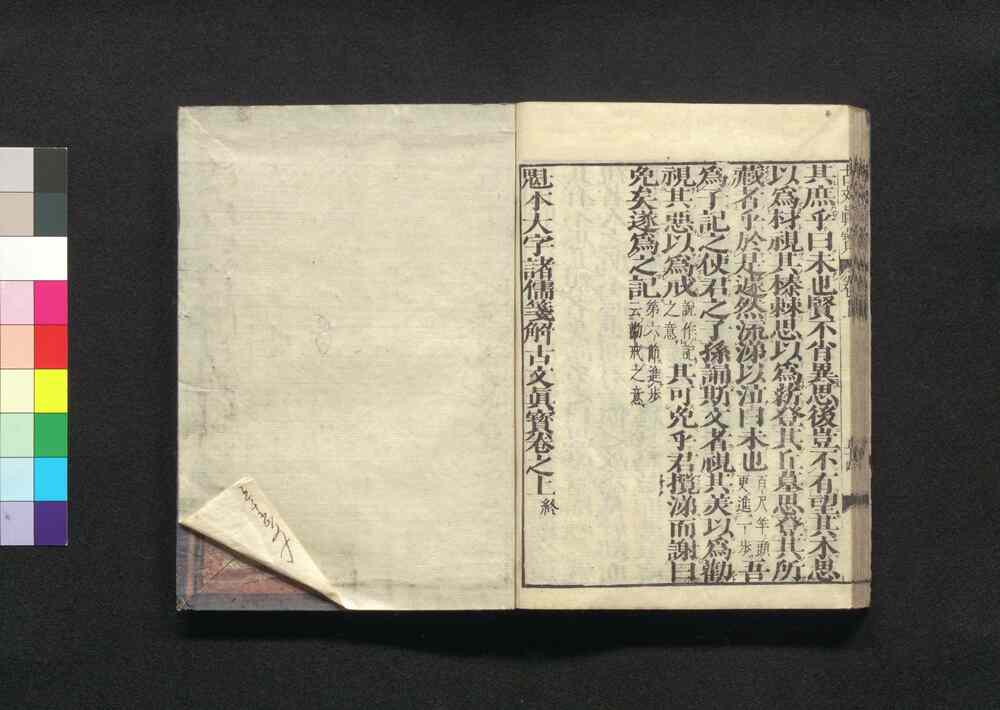 其庶乎曰未也賢不肖異思後豈不有望其木思
以爲材視其榛棘思以爲薪登其丘墓思登其所
藏者乎於是遂然流涕以泣曰未也百尺竿頭更進一歩吾
爲子記之使君之子孫誦斯文者視其美以爲勸
視其惡以爲戒說作記之意其可免乎君攬涕而謝曰
免矣遂爲之記第六節進步云勸戒之意
魁本大字諸儒箋解古文眞寶卷之上終